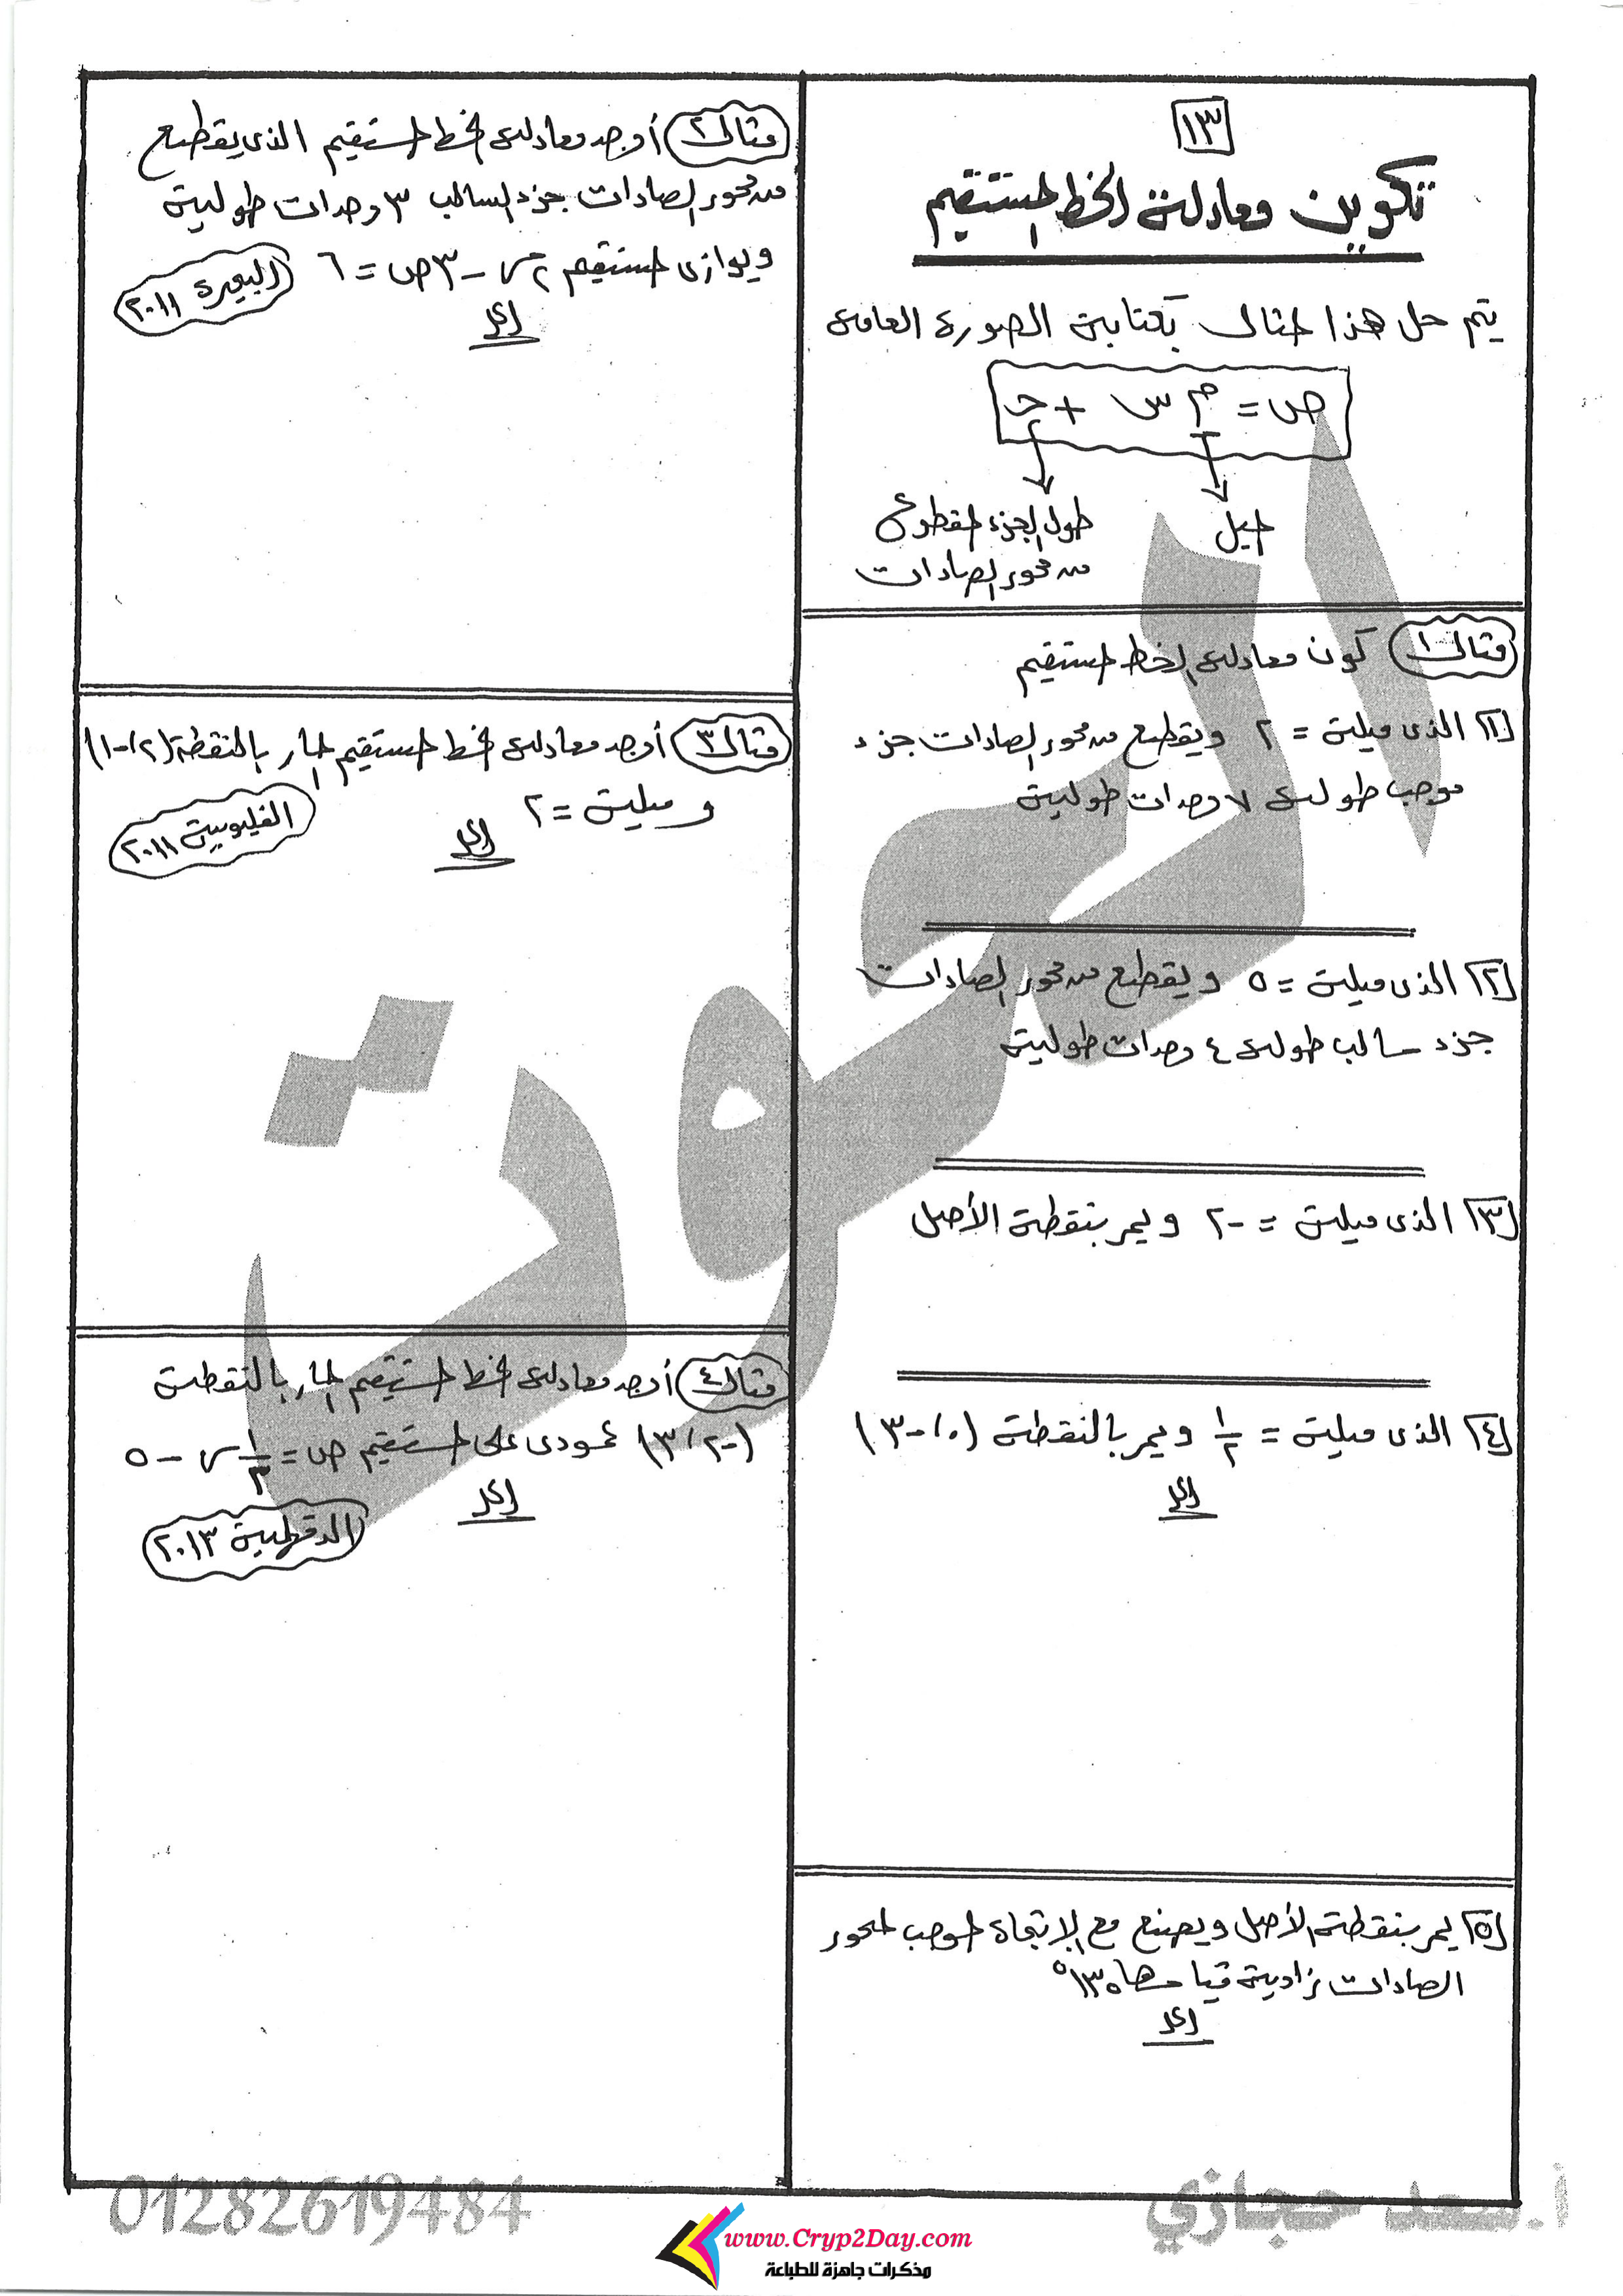 ١٣
تكوين معادلة الخط المستقيم
يتم حل هذا المثال بكتابة الصورة العامة
ص = م س + جـ
الميل
طول الجزء المقطوع
من محور الصادات
مثال ١ كون معادلة الخط المستقيم
[١] الذى ميله = ٢ ويقطع من محور الصادات جزء
موجب طوله ٧ وحدات طولية
[٢] الذى ميله = ٥ ويقطع من محور الصادات
جزء سالب طوله ٤ وحدات طولية
[٣] الذى ميله = -٢ ويمر بنقطة الأصل
[٤] الذى ميله = ١/٢ ويمر بالنقطة (٠، -٣)
الحل
[٥] يمر بنقطة الأصل ويصنع مع الإتجاه الموجب لمحور
الصادات زاوية قياسها ١٣٠°
الحل
مثال ٢ أوجد معادلة الخط المستقيم الذى يقطع
من محور الصادات جزء سالب ٣ وحدات طولية
ويوازى المستقيم ٢س - ٣ص = ٦
البحيرة ٢٠١١
الحل
مثال ٣ أوجد معادلة الخط المستقيم المار بالنقطة (٢، -١)
وميله = ٢
القليوبية ٢٠١١
الحل
مثال ٤ أوجد معادلة الخط المستقيم المار بالنقطة
(-٢، ٣) عمودى على المستقيم ص = ١/٣ س - ٥
الحل
الدقهلية ٢٠١٣
01282619484
أ.سعد حجازي
www.Cryp2Day.com
مذكرات جاهزة للطباعة